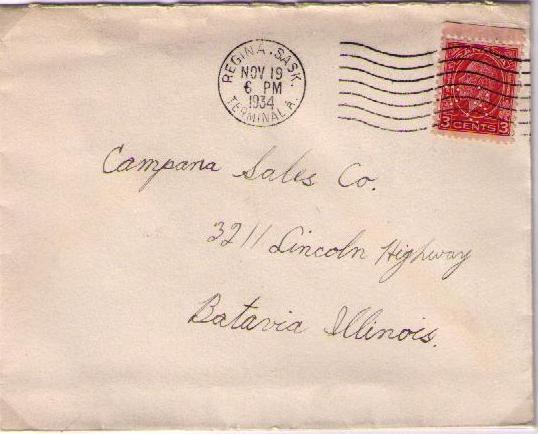 REGINA. SASK.
NOV 19
6 PM
1934
TERMINAL A.
3 CENTS 3
Campana Sales Co.
3211 Lincoln Highway
Batavia Illinois.